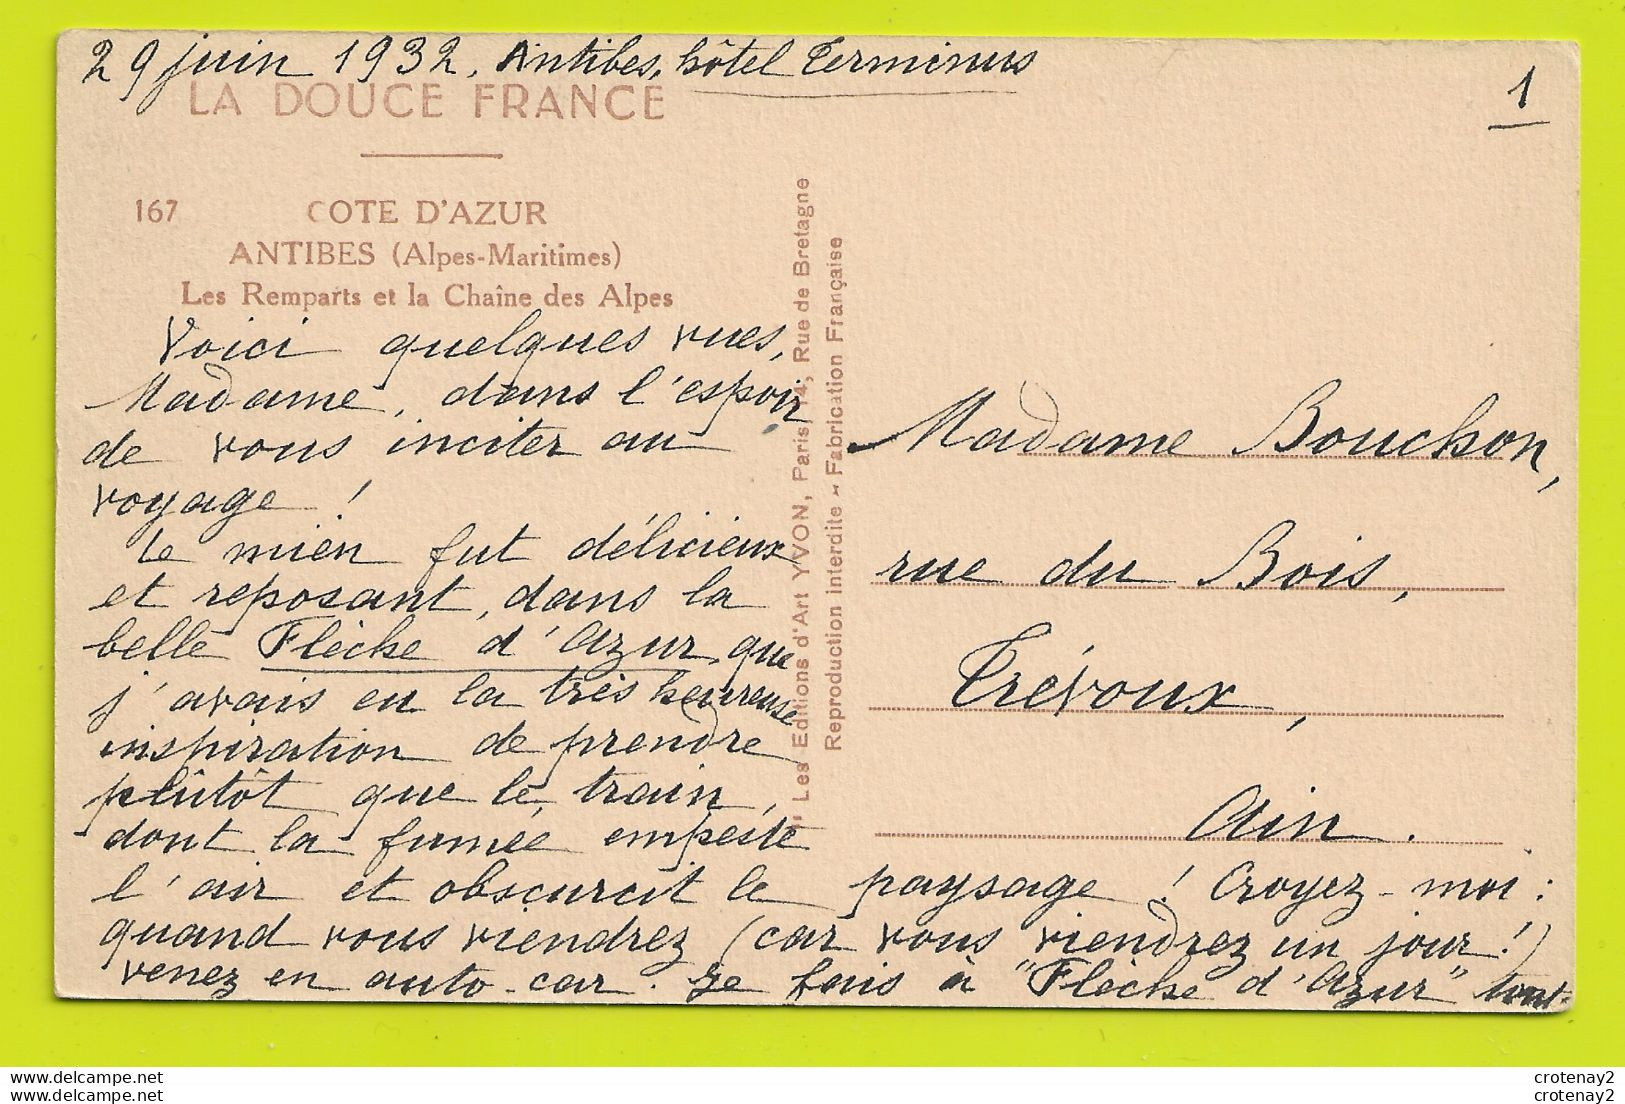 29 juin 1932. Antibes, hôtel Terminus
1
LA DOUCE FRANCE
167 COTE D'AZUR
ANTIBES (Alpes-Maritimes)
Les Remparts et la Chaîne des Alpes
Voici quelques vues,
Madame, dans l'espoir
de vous inciter au
voyage !
Le mien fut délicieux
et reposant, dans la
belle Flèche d'Azur, que
j'avais eu la très heureuse
inspiration de prendre
plûtôt que le train,
dont la fumée empeste
l'air et obscurcit le paysage ! Croyez-moi :
quand vous viendrez (car vous viendrez un jour !)
venez en auto-car. Je fais à "Flèche d'Azur" tout-
Les Editions d'Art YVON, Paris, 14, Rue de Bretagne
Reproduction interdite - Fabrication Française
Madame Bouchon,
rue du Bois,
Trévoux,
Ain.
www.delcampe.net
www.delcampe.net
crotenay2
crotenay2